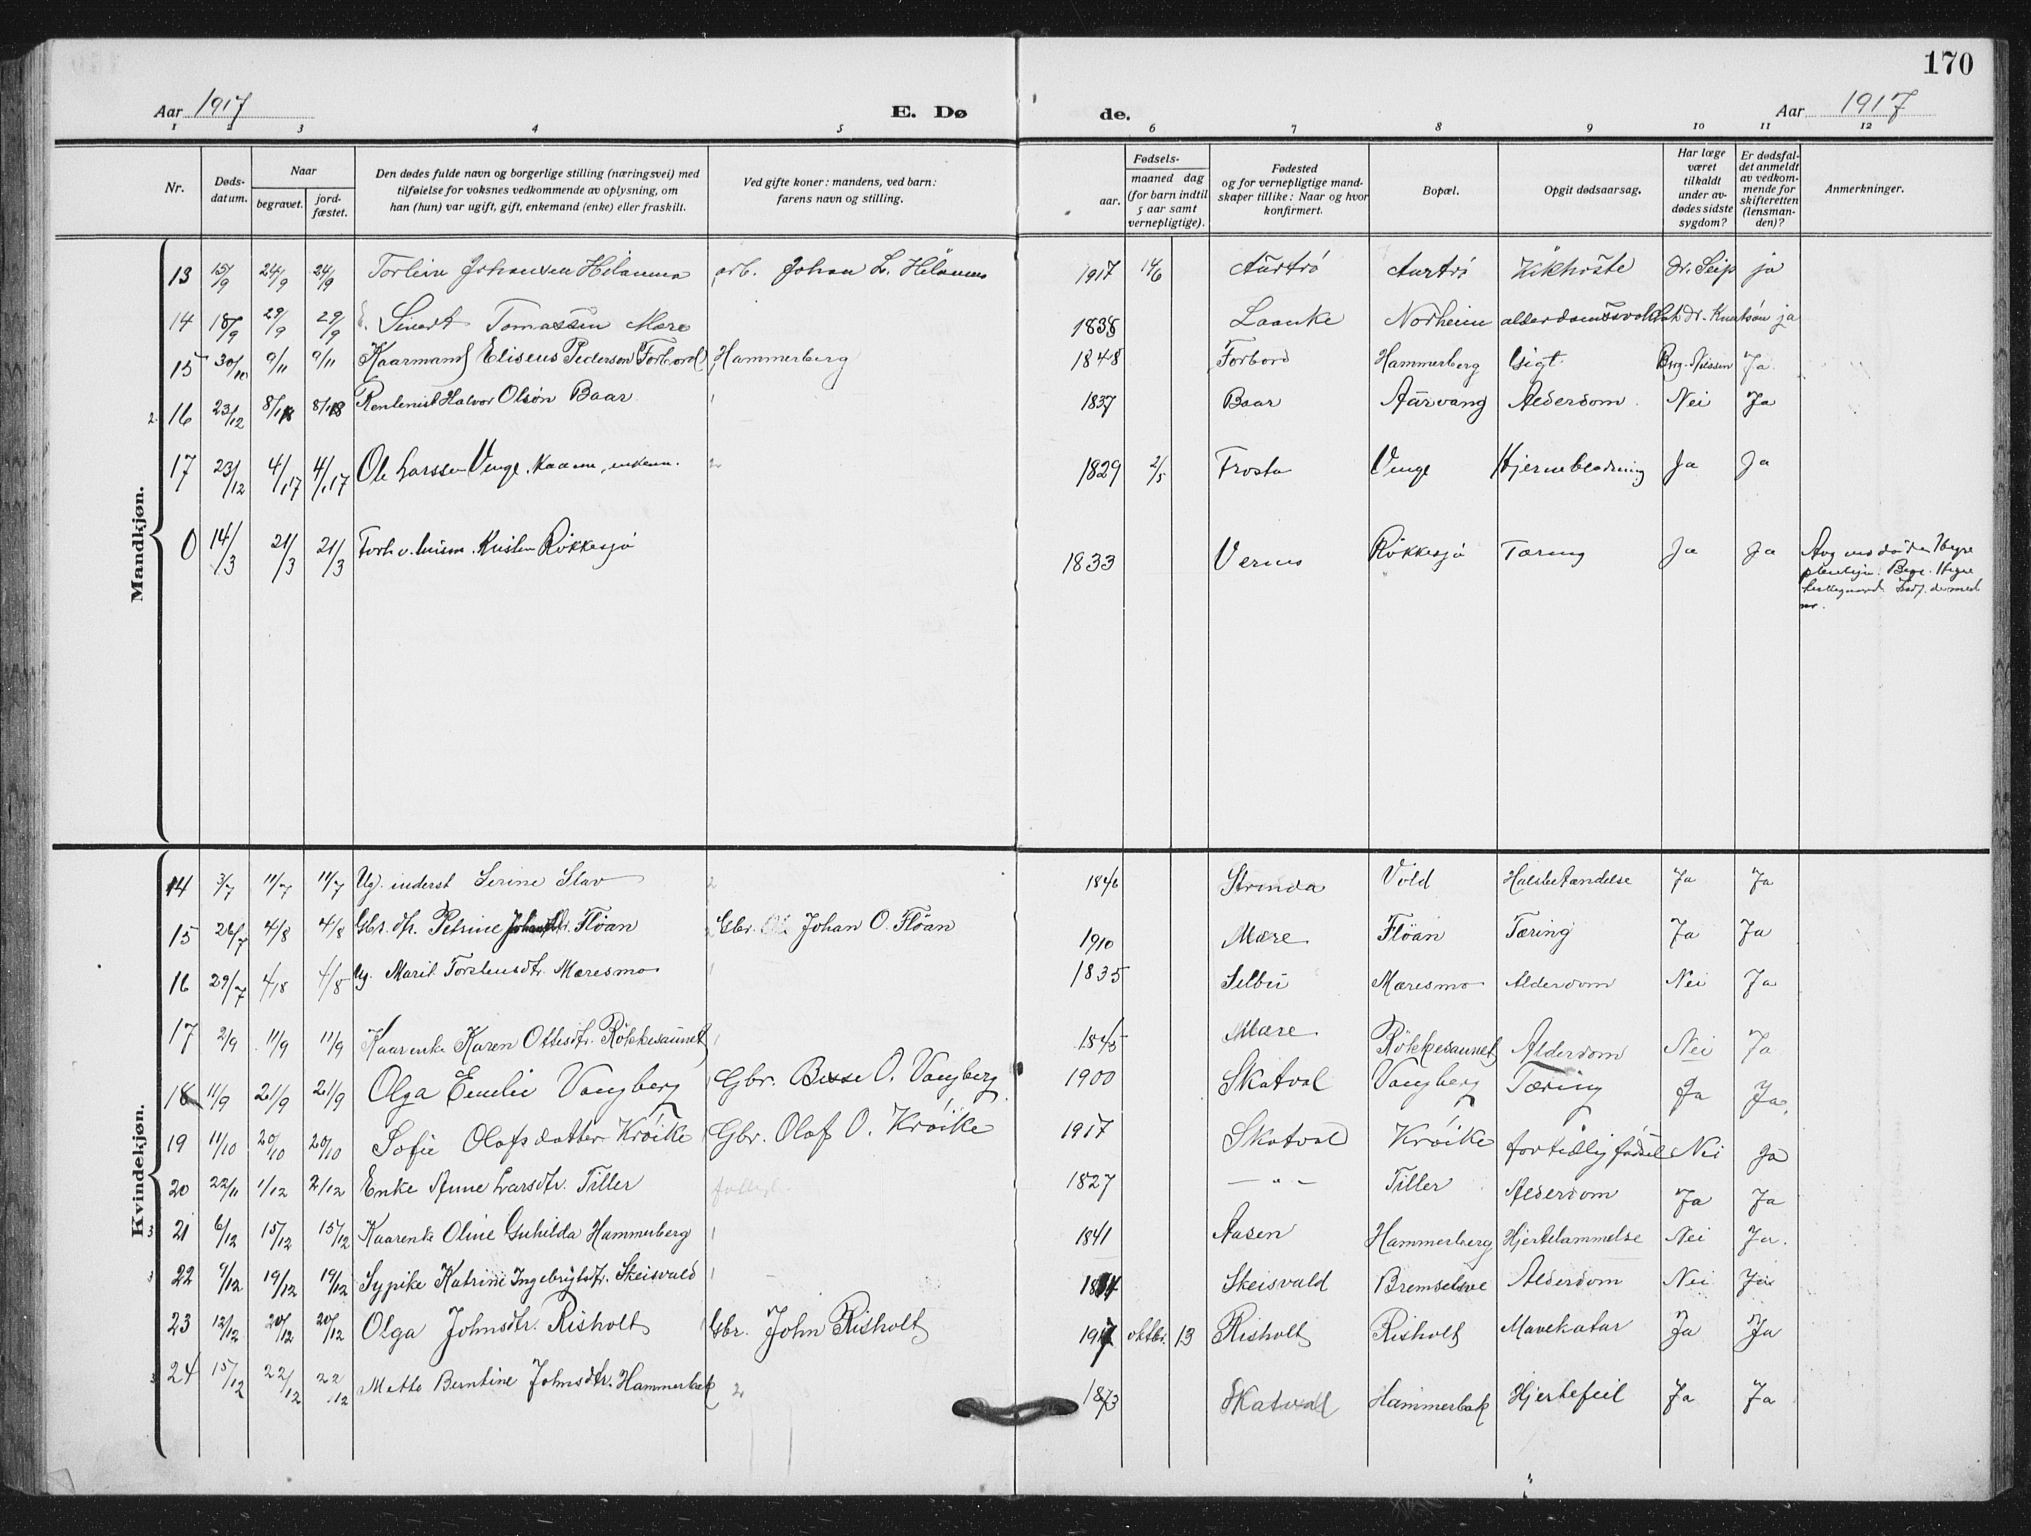 170
Aar 1917 E. Dø de. Aar 1917
1 2 3 4 5 6 7 8 9 10 11 12
Nr. Døds-datum. Naar begravet. jord-fæstet. Den dødes fulde navn og borgerlige stilling (næringsvei) med tilføielse for voksnes vedkommende av oplysning, om han (hun) var ugift, gift, enkemand (enke) eller fraskilt. Ved gifte koner: mandens, ved barn: farens navn og stilling. Fødsels- aar. maaned dag (for barn indtil 5 aar samt vernepligtige). Fødested og for vernepligtige mand-skaper tillike: Naar og hvor konfirmert. Bopæl. Opgit dødsaarsag. Har læge været tilkaldt under av-dødes sidste sygdom? Er dødsfal-det anmeldt av vedkom-mende for skifteretten (lensman-den)? Anmerkninger.
Mandkjøn.
13 15/9 24/9 24/9 Torleiv Johansen Hilamma arb. Johan L. 1917 14/6 Aurtrö Aurtrö Kikhoste dr. Seip ja
14 18/9 29/9 29/9 Sivert Tomassen Mære 1838 Laanke Norheim dr. Knutsön ja
15 30/10 9/11 9/11 Kaarmand Eliseus Pederson Forbord Hammerberg 1848 Forbord Hammerberg Gigt Brg. Nilssen Ja
2 16 23/12 8/1 18 8/1 18 Rentenist Halvor Olsön Baar 1837 Baar Aarvang Alderdom. Nei Ja
17 23/12 4/1 17 4/1 17 Ole Larssen Venge, Kaarm, enkem. 2 1829 2/5 Frosta Venge Hjerneblødning Ja Ja
0 14/3 21/3 21/3 Forh.v. Kristen Røkkesjø 1833 Vernes Røkkesjø Tæring Ja Ja
nr.
Kvindekjøn.
14 3/7 11/7 11/7 Ug. inderst Serine Stav 2 1846 Strinda Vold Halsbetændelse Ja Ja
15 26/7 4/8 4/8 Gbr. dtr. Petrine Johansdtr. Fløan Gbr. Johan O. Fløan 1910 Mære Fløan Tæring Ja Ja
16 29/7 4/8 4/8 Ug. Marit Torstensdtr. Mæresmo 1835 Selbu Mæresmo Alderdom Nei Ja
17 2/9 11/9 11/9 Kaarenke Karen Ottesdtr. Røkkesaunet 1845 Mære Røkkesaunet Alderdom Nei Ja
18 11/9 21/9 21/9 Olga Emelie Vangberg Gbr. O. Vangberg 1900 Skatval Vangberg Tæring Ja Ja.
19 11/10 20/10 20/10 Sofie Olafsdatter Krøike Gbr. Olaf O. Krøike 1917 Skatval Krøike fortidlig fødsel Nei Ja
20 22/11 1/12 2/12 Enke Anne Larsdtr. Tiller 1827 — " — Tiller Alderdom Ja Ja
3 21 6/12 15/12 15/12 Kaarenke Oline Gunhilda Hammerberg 1841 Aasen Hammerberg Hjertelammelse Nei Ja.
22 9/12 19/12 19/12 Sypike Katrine Ingebrigtsdtr. Skeisvald Skeisvald Alderdom Nei Ja
23 12/12 20/12 20/12 Olga Johnsdtr. Risholt Gbr. John Risholt 1917 oktbr. 13 Risholt Risholt Mavekatar Ja Ja
3 24 15/12 22/12 22/12 Mette Berntine Johnsdtr. Hammerbak 2 1873 Skatval Hammerbak Hjertefeil Ja Ja